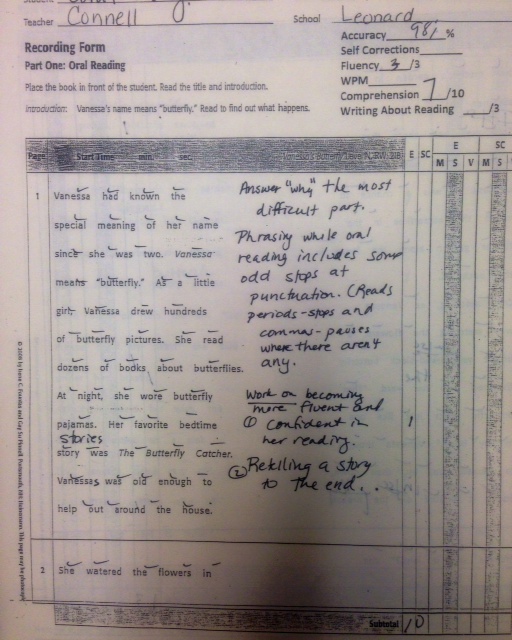 Teacher Connell School Leonard
Accuracy 98% %
Self Corrections
Recording Form
Fluency 3 /3
Part One: Oral Reading
WPM
Place the book in front of the student. Read the title and introduction.
Comprehension 7 /10
Introduction: Vanessa's name means "butterfly." Read to find out what happens.
Writing About Reading /3
E SC
Page Start Time min. sec. E SC M S V M S
1 Vanessa had known the
special meaning of her name
since she was two. Vanessa
means "butterfly." As a little
girl, Vanessa drew hundreds
of butterfly pictures. She read
dozens of books about butterflies.
At night, she wore butterfly
pajamas. Her favorite bedtime 1
stories
story was The Butterfly Catcher.
Vanessa was old enough to
help out around the house.
Answer "why" the most
difficult part.
Phrasing while oral
reading includes some
odd stops at
punctuation. (Reads
periods-stops and
commas-pauses
where there aren't
any.
Work on becoming
more fluent and
① confident in
her reading.
② Retelling a story
to the end...
2 She watered the flowers in
Subtotal 1 0